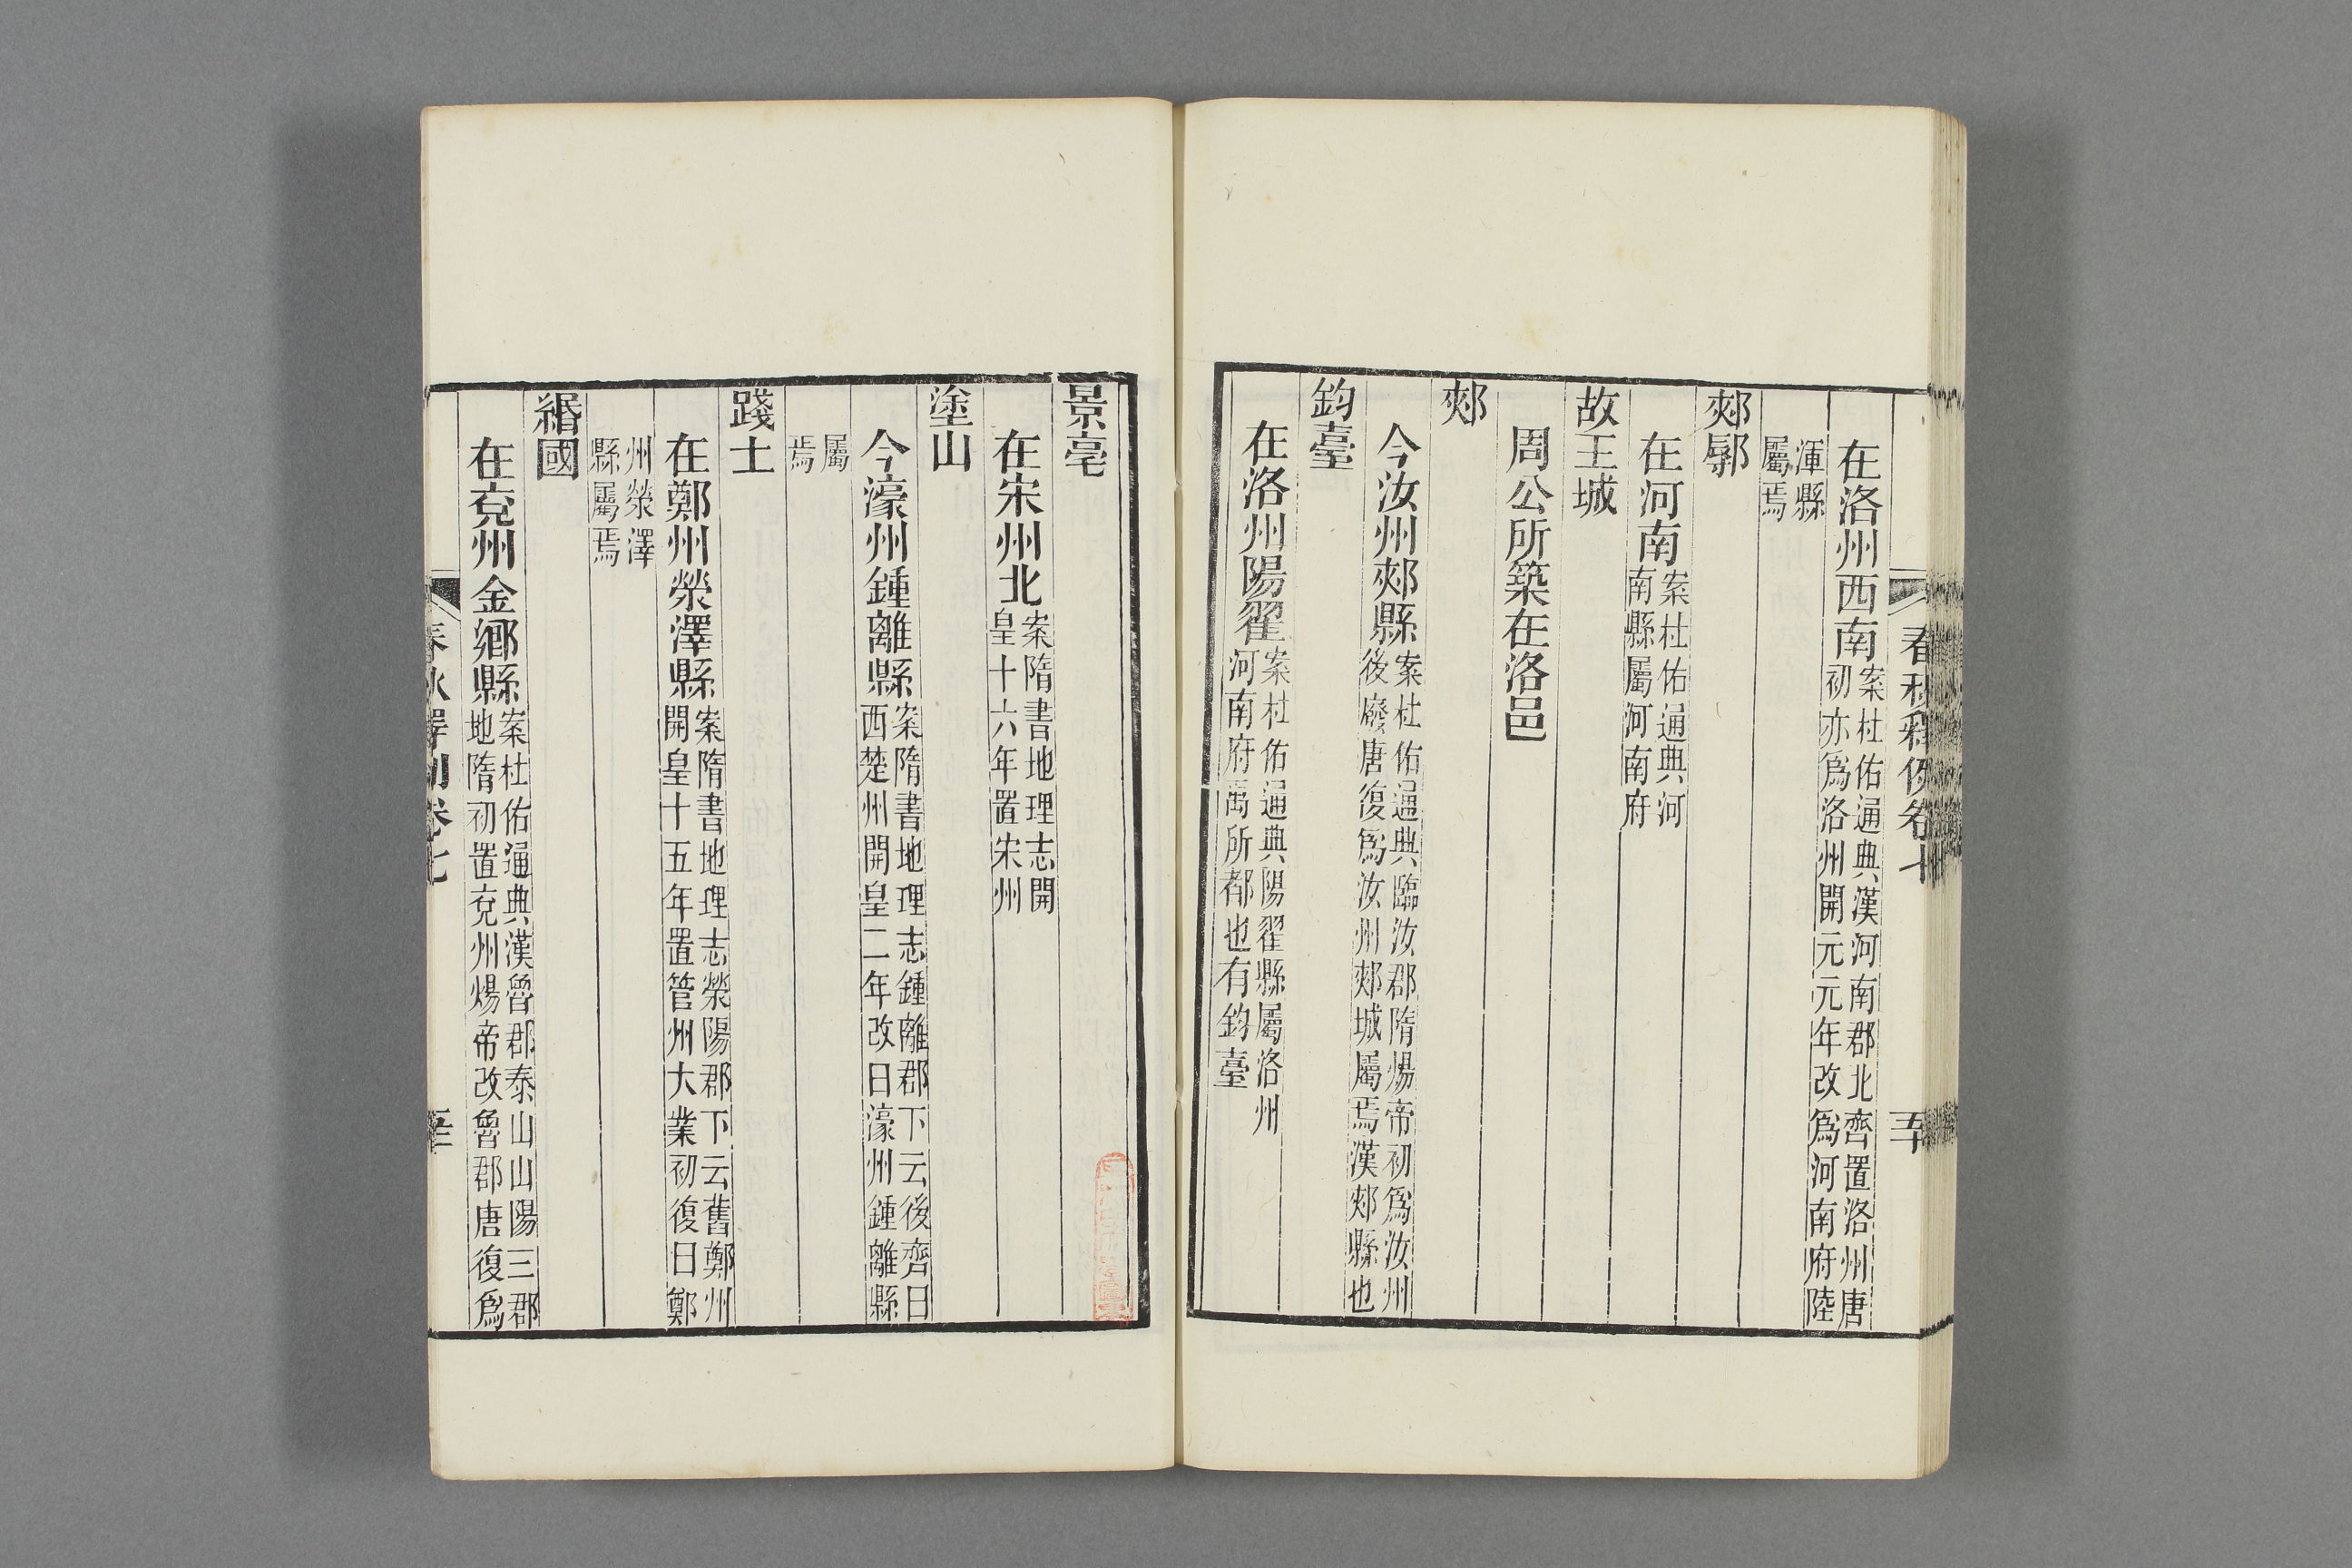 在洛州西南案杜佑通典漢河南郡北齊置洛州唐初亦爲洛州開元元年改爲河南府陸
渾縣屬焉
郟鄏
在河南案杜佑通典河南縣屬河南府
故王城
周公所築在洛邑
郟
今汝州郟縣案杜佑通典臨汝郡隋煬帝初爲汝州後廢唐復爲汝州郟城屬焉漢郟縣也
鈞臺
在洛州陽翟案杜佑通典陽翟縣屬洛州河南府禹所都也有鈞臺
景亳
在宋州北案隋書地理志開皇十六年置宋州
塗山
今濠州鍾離縣案隋書地理志鍾離郡下云後齊曰西楚州開皇二年改曰濠州鍾離縣
屬焉
踐土
在鄭州滎澤縣案隋書地理志滎陽郡下云舊鄭州開皇十五年置管州大業初復曰鄭
州滎澤縣屬焉
緡國
在兗州金鄉縣案杜佑通典漢魯郡泰山山陽三郡地隋初置兗州煬帝改魯郡唐復爲
春秋釋例卷七